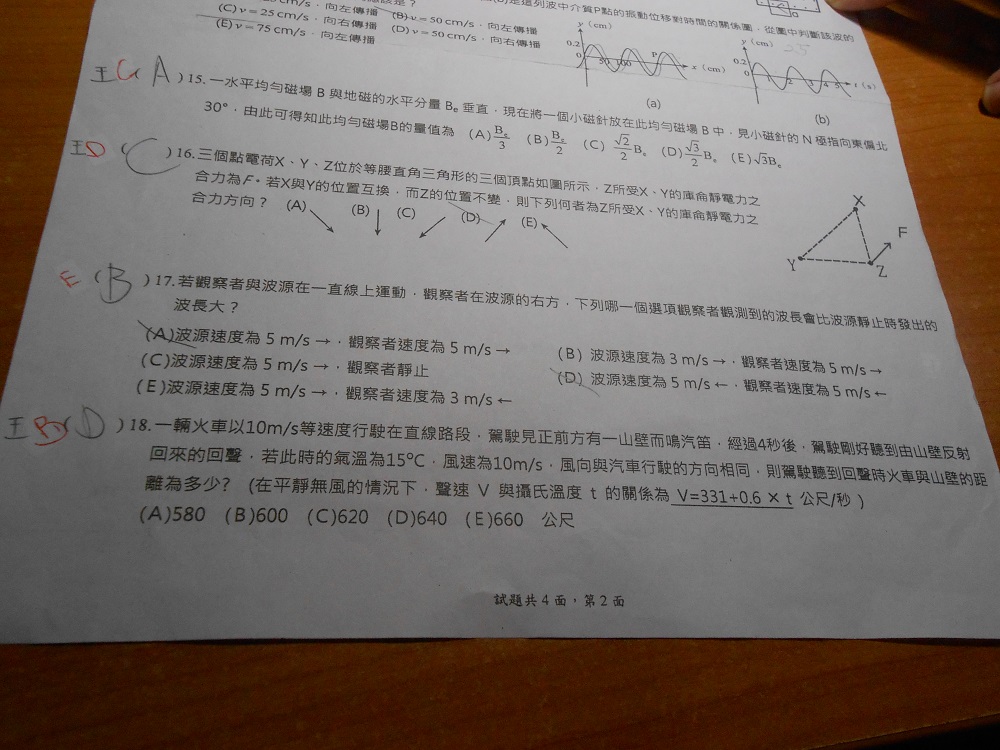 是這列波中介質P點的振動位移對時間的關係圖，從圖中判斷該波的
cm/s，向左傳播 (B) v=50 cm/s，向左傳播
(C) v=25 cm/s，向右傳播 (D) v=50 cm/s，向右傳播
(E) v=75 cm/s，向左傳播
y (cm)
0.2
0
50 100
P
x (cm)
(a)
y (cm)
0.2
0
1 2 3 4 5
t (s)
(b)
A )15.一水平均勻磁場 B 與地磁的水平分量 Be 垂直，現在將一個小磁針放在此均勻磁場 B 中，見小磁針的 N 極指向東偏北
30°，由此可得知此均勻磁場B的量值為 (A) Be/3 (B) Be/2 (C) √2/2 Be (D) √3/2 Be (E) √3Be
王D ( C )16.三個點電荷X、Y、Z位於等腰直角三角形的三個頂點如圖所示，Z所受X、Y的庫侖靜電力之
合力為F。若X與Y的位置互換，而Z的位置不變，則下列何者為Z所受X、Y的庫侖靜電力之
合力方向？ (A) ↘ (B) ↓ (C) ↙ (D) ↗ (E) ↖
X
Y
Z
F
E ( B )17.若觀察者與波源在一直線上運動，觀察者在波源的右方，下列哪一個選項觀察者觀測到的波長會比波源靜止時發出的
波長大？
(A)波源速度為 5 m/s →，觀察者速度為 5 m/s →
(B) 波源速度為 3 m/s →，觀察者速度為 5 m/s →
(C)波源速度為 5 m/s →，觀察者靜止
(D) 波源速度為 5 m/s ←，觀察者速度為 5 m/s ←
(E)波源速度為 5 m/s →，觀察者速度為 3 m/s ←
王B ( D )18.一輛火車以10m/s等速度行駛在直線路段，駕駛見正前方有一山壁而鳴汽笛，經過4秒後，駕駛剛好聽到由山壁反射
回來的回聲，若此時的氣溫為15℃，風速為10m/s，風向與汽車行駛的方向相同，則駕駛聽到回聲時火車與山壁的距
離為多少? (在平靜無風的情況下，聲速 V 與攝氏溫度 t 的關係為 V=331+0.6 × t 公尺/秒 )
(A)580 (B)600 (C)620 (D)640 (E)660 公尺
試題共 4 面，第 2 面